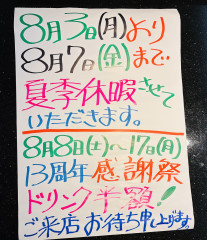 8月3日(月)より
8月7日(金)まで
夏季休暇させて
いただきます。
8月8日(土)〜17日(月)
13周年 感謝祭
ドリンク半額!
ご来店お待ち申し上げます。